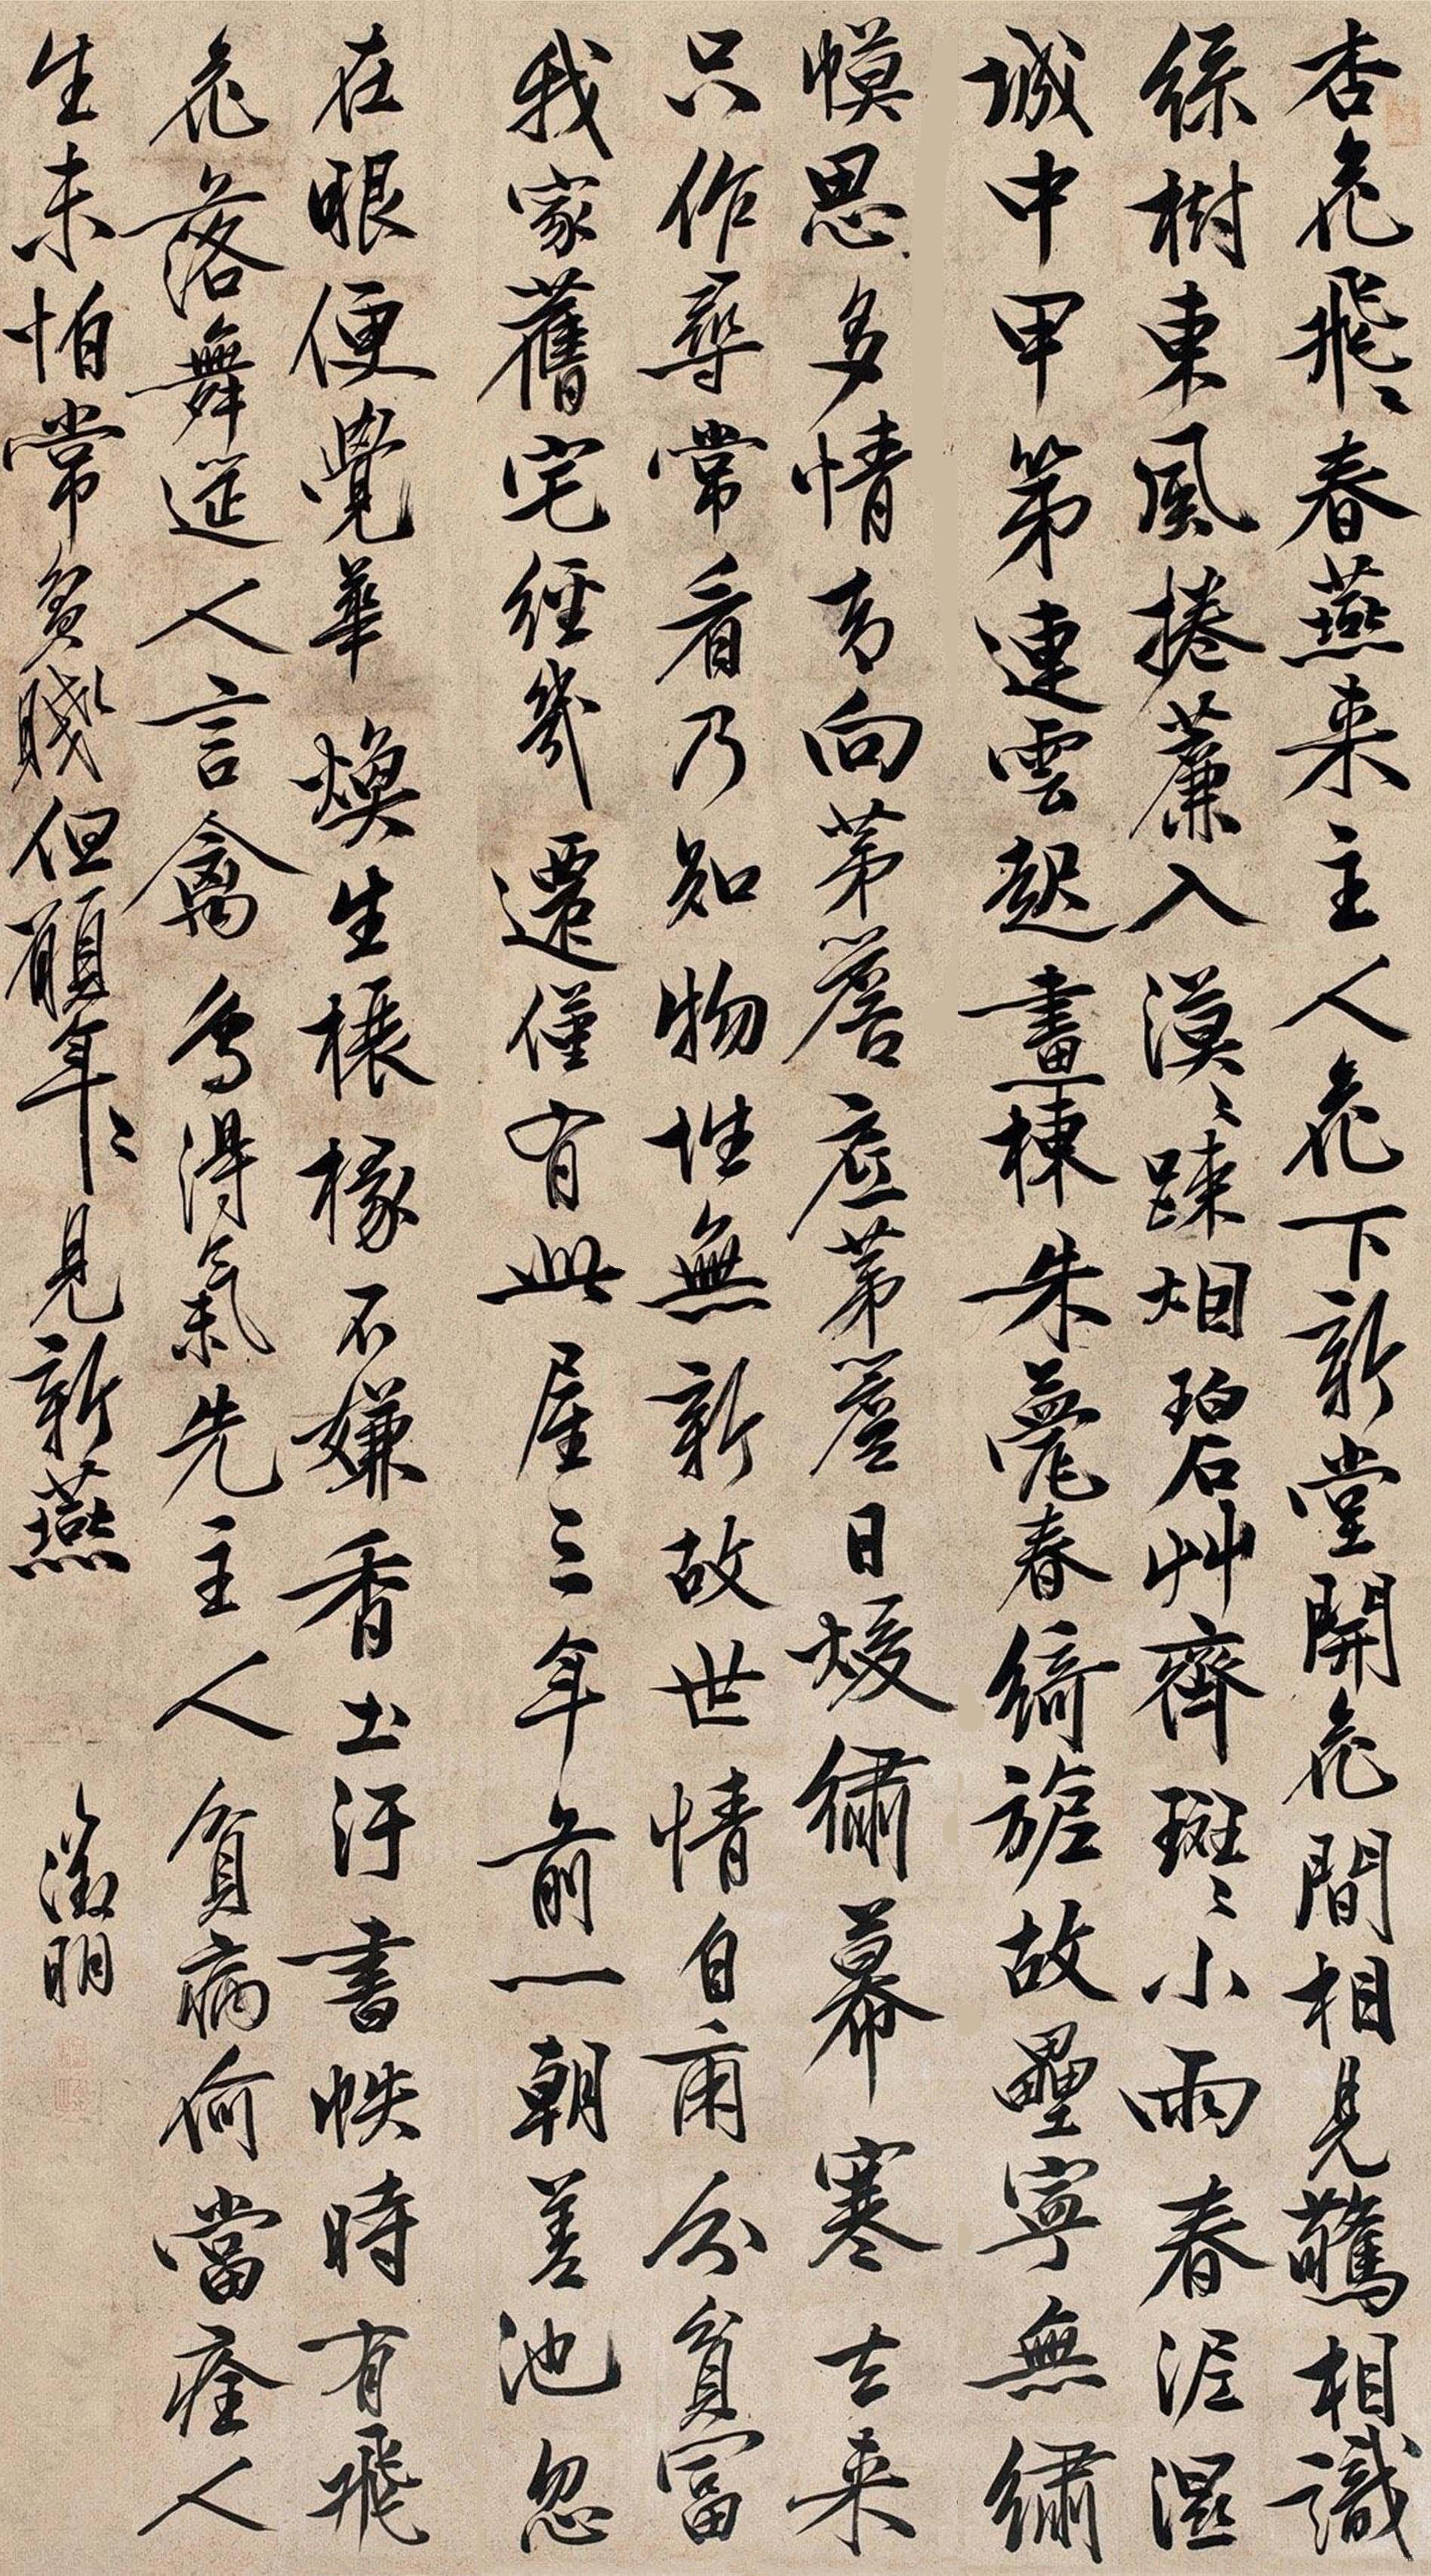 杏花飛〻春燕来主人花下新堂開花間相見驚相識
綠樹東風捲簾入漠〻踈烟碧艸齊斑〻小雨春泥濕
城中甲第連雲起畫棟朱甍春綺旎故壘寧無繡
幙思多情卻向茅簷底茅簷日煖繡幕寒去来
只作尋常看乃知物性無新故世情自爾分貧富
我家舊宅經幾遷僅有此屋三年前一朝差池忽
在眼便覺華煥生榱椽不嫌香土汙書帙時有飛
花落舞筵人言禽鳥得氣先主人貧病何當痊人
生未怕常貧賤但願年〻見新燕
徵明